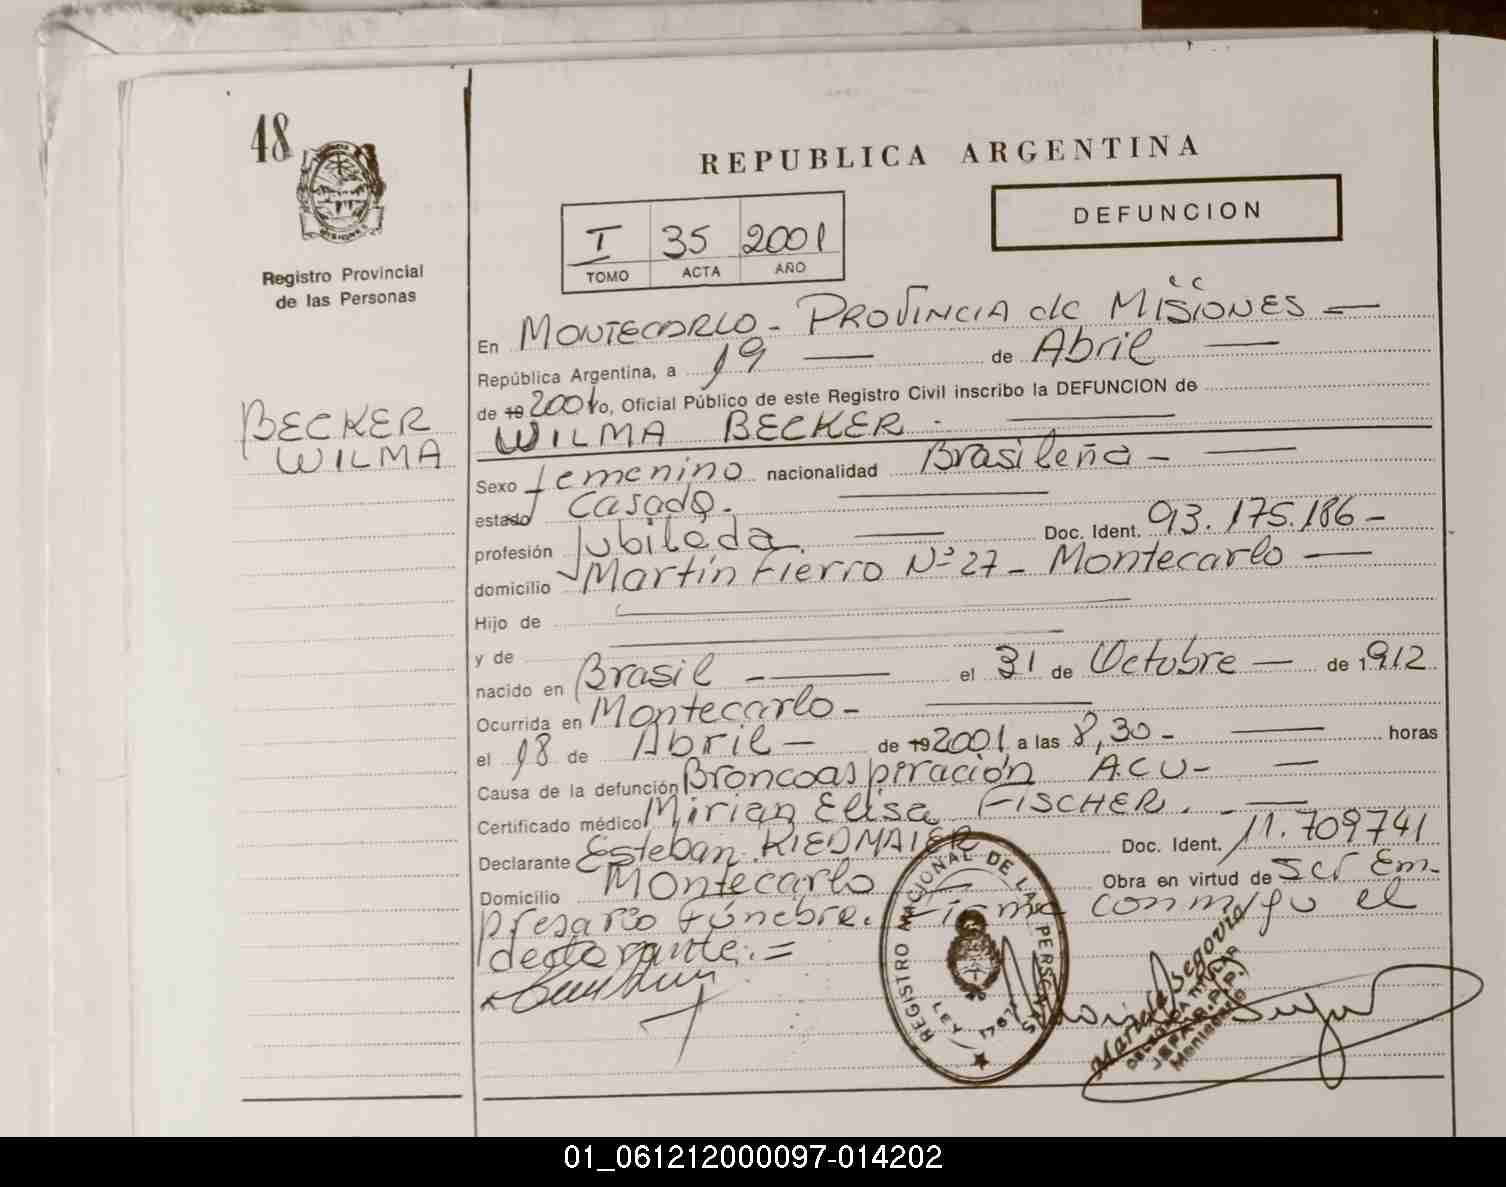 48
REPUBLICA ARGENTINA
DEFUNCION
I 35 2001
TOMO ACTA AÑO
Registro Provincial
de las Personas
En MONTECARLO - PROVINCIA de MISIONES —
República Argentina, a 19 — de Abril —
de 19 2001 o, Oficial Público de este Registro Civil inscribo la DEFUNCION de
BECKER
WILMA
WILMA BECKER. —
Sexo femenino nacionalidad Brasileña - —
estado Casada. —
profesión Jubilada. — Doc. Ident. 93.175.186 -
domicilio Martín Fierro Nº 27 - Montecarlo —
Hijo de —
y de —
nacido en Brasil - — el 31 de Octubre — de 1912
Ocurrida en Montecarlo - —
el 18 de Abril — de 19 2001 a las 8,30 - — horas
Causa de la defunción Broncoaspiración A.C.U - —
Certificado médico Mirian Elisa FISCHER. - —
Declarante Esteban RIEDMAIER Doc. Ident. 11.709741
Domicilio Montecarlo — Obra en virtud de ser Em-
presario fúnebre. Firma conmigo el
declarante. =
REGISTRO NACIONAL DE LAS PERSONAS
LEY
María Segovia
DELEGADA TITULAR
01_061212000097-014202